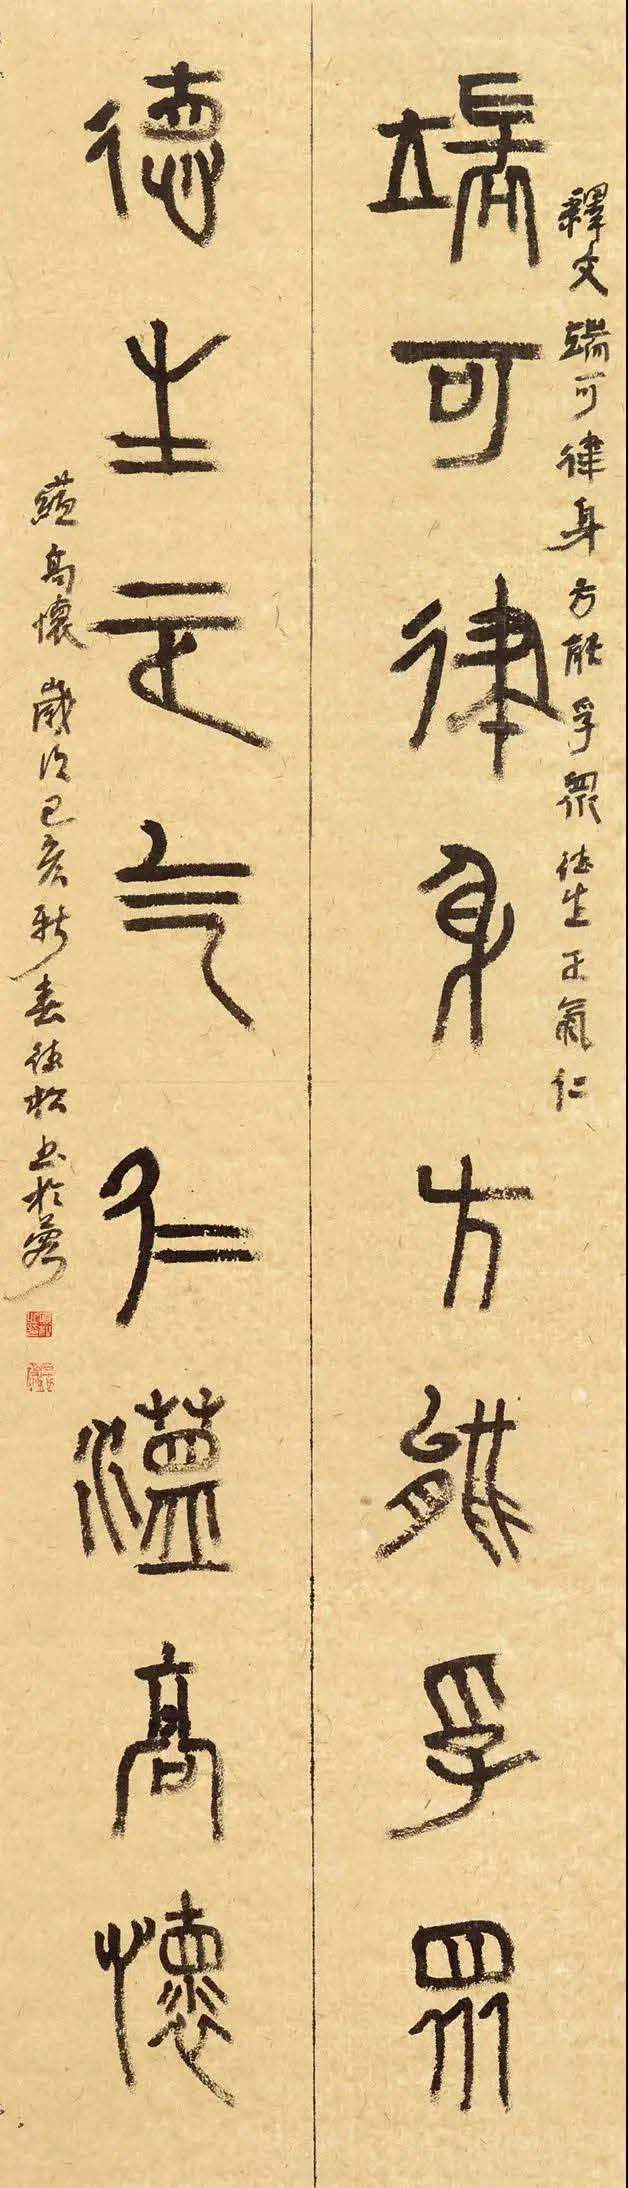 釋文端可律身方能孚眾德生正氣仁
端可律身方能孚眾
德生正气仁蘊高懷
蘊高懷歲次己亥新春德松書於蓉